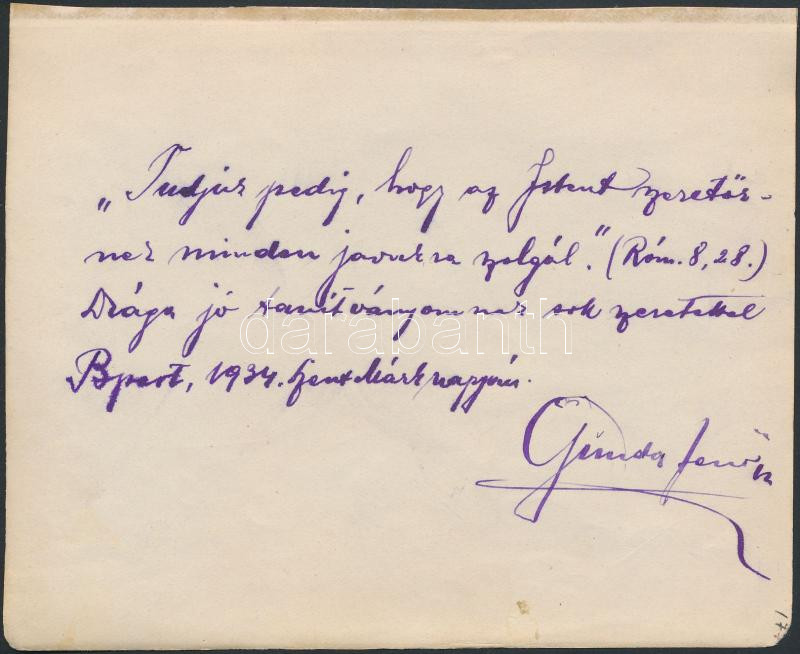 „Tudjuk pedig, hogy az Istent szeretők-
nek minden javukra szolgál." (Róm. 8, 28.)
Drága jó tanítványomnak sok szeretettel
darabanth
Bpest, 1934. Szent Márk napján.
Jenő